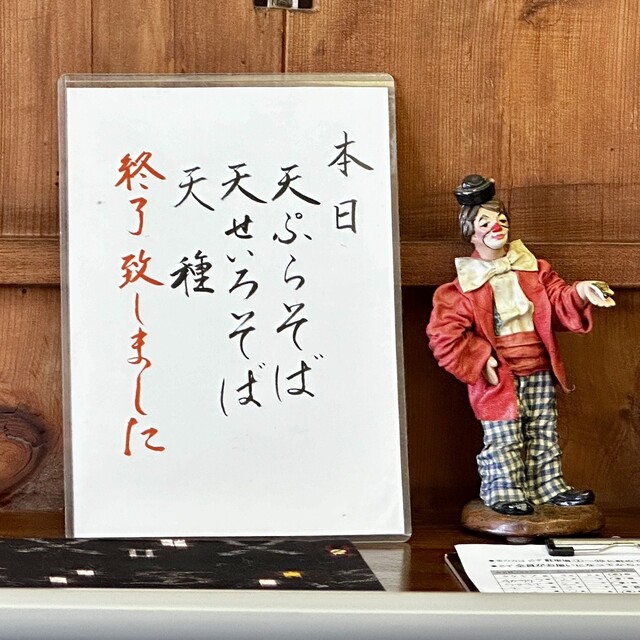 本日
天ぷらそば
天せいろそば
天種
終了致しました